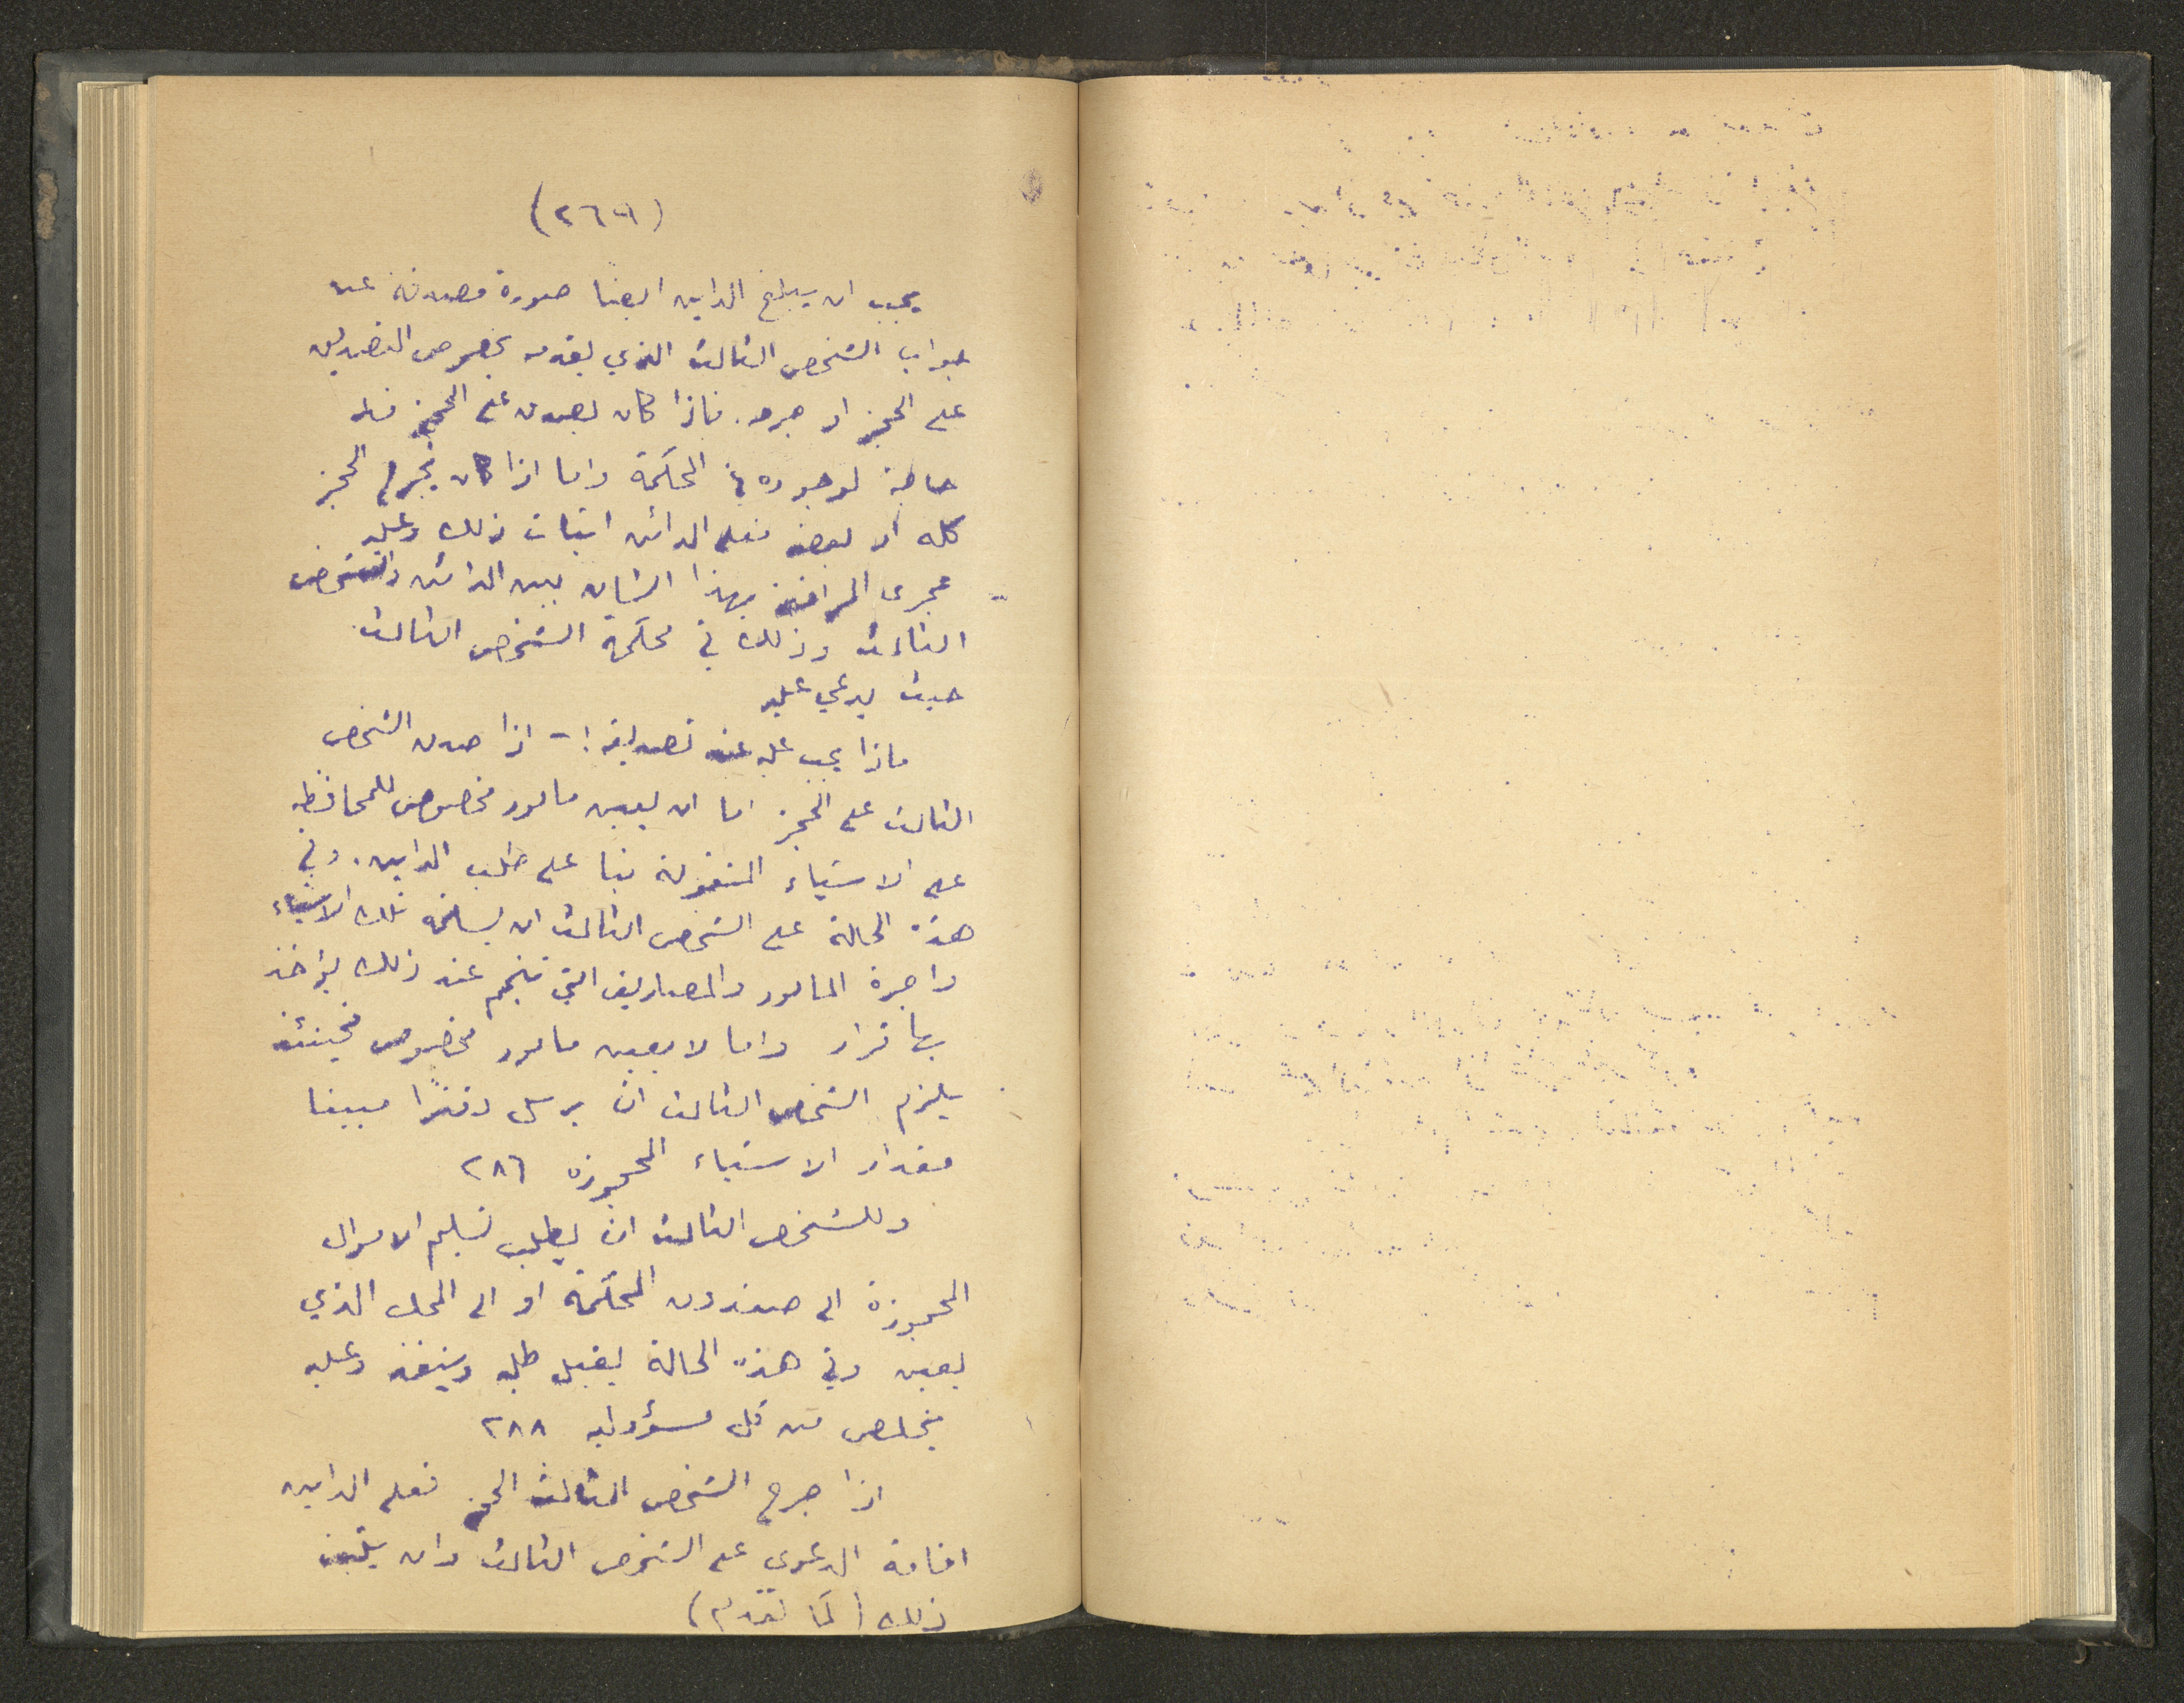 (٢٦٩)
يجب ان يبلغ الداين ايضًا صورة مصدقة عن
جواب الشخص الثالث الذي يقدمه بخصوص التصديق
على الحجز او جرحه. فاذا كان يصدق على الحجز فلا
حاجة لوجوده في المحكمة واما اذا كان يجرح الحجز
كله او بعضه فعلى الدائن اثبات ذلك وعليه
تجري المرافعة بهذا الشان بين الدائن والشخص
الثالث وذلك في محكمة الشخص الثالث
حيث يدعي عليه
ماذا يجب عليه عند تصديقه :- اذا صدق الشخص
الثالث على الحجز اما ان يعين مامور مخصوص للمحافظه
على الاشياء المنقولة بنا على طلب الداين. وفي
هذه الحالة على الشخص الثالث ان يسلمه تلك الاشياء
واجرة المامور والمصاريف التي تنجم عند ذلك يؤخذ
بها قرار واما لا يعين مامور مخصوص فحينئذ
يلزم الشخص الثالث ان يرسل دفترًا مبينا
مقدار الاشياء المحجوزه ٢٨٦
وللشخص الثالث ان يطلب تسليم الاموال
المحجوزة الى صندوق المحكمة او الى المحل الذي
يعين وفي هذه الحالة يقبل طلبه وينفذ وعليه
يخلص من كل مسؤوليه ٢٨٨
اذا جرح الشخص الثالث الحجز فعلى الداين
اقامة الدعوى على الشخص الثالث وان يثبت
ذلك (كما تقدم)